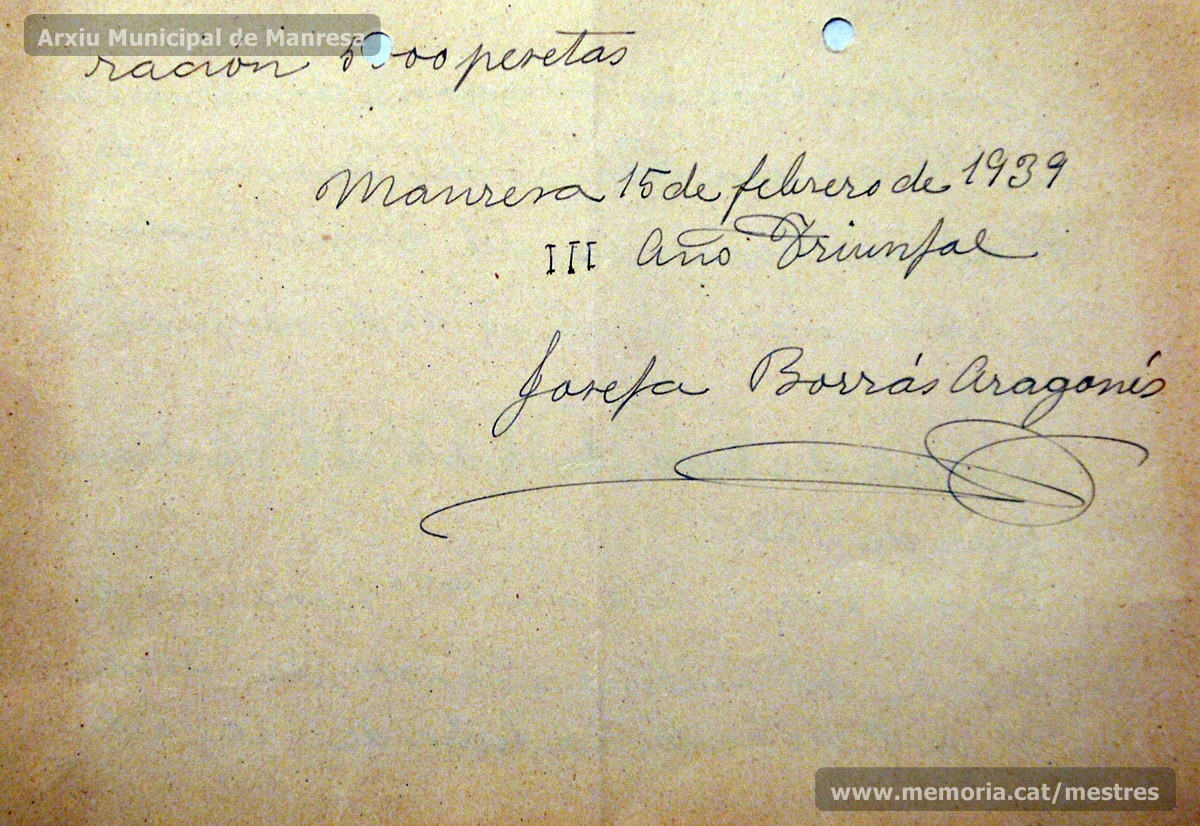 Arxiu Municipal de Manresa
ración 5000 pesetas
Manresa 15 de febrero de 1939
III Año Triunfal
Josefa Borrás Aragonés
www.memoria.cat/mestres